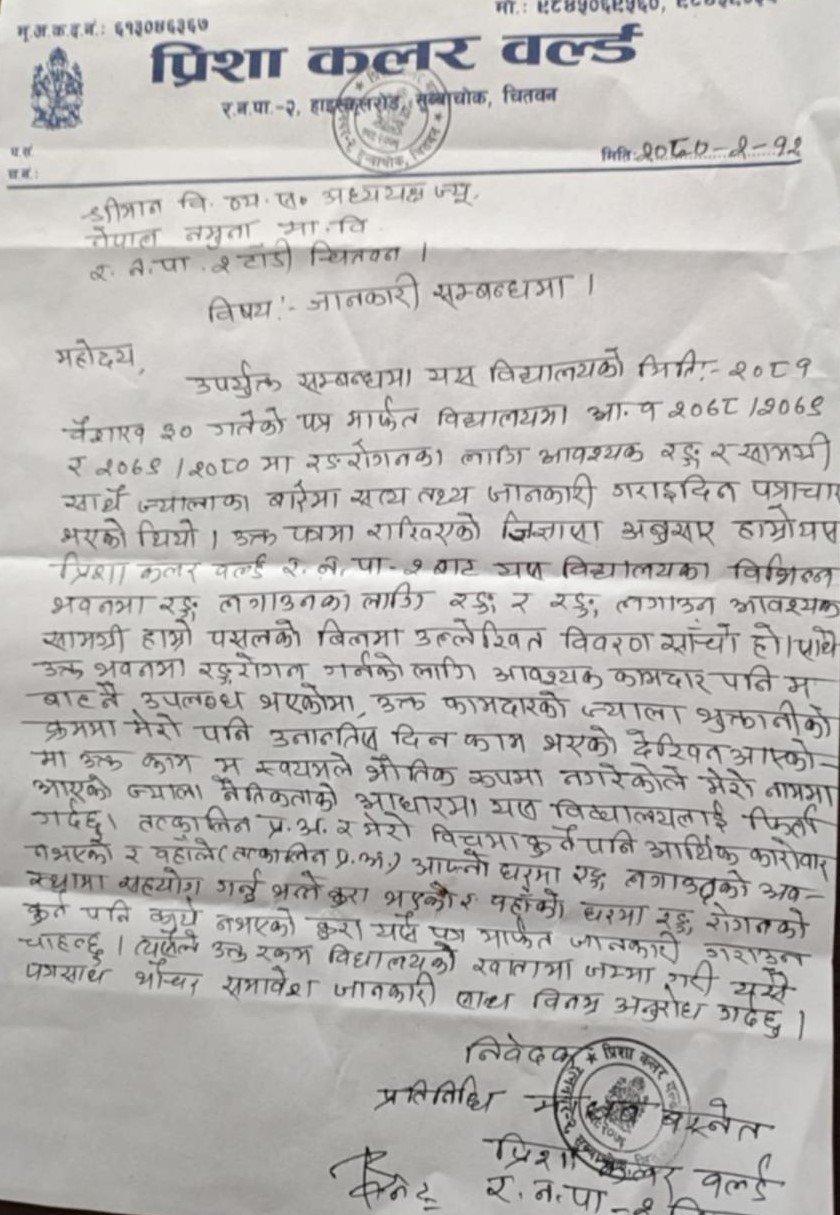 मू.अ.क.द.नं.: ६१३०४६३६७
मो.: ९८४५०६९५६०,
प्रिशा कलर वर्ल्ड
र.न.पा.-२, हाइस्कूलरोड, सुब्बाचोक, चितवन
प.सं.
च.नं.:
मिति: २०८०-२-१२
श्रीमान वि. व्य. स० अध्ययक्ष ज्यू,
नेपाल नमुना मा. वि.
र. न. पा. २ टाँडी चितवन ।
विषय:- जानकारी सम्बन्धमा ।
महोदय,
उपर्युक्त सम्बन्धमा यस विद्यालयको मिति:- २०८१
बैशाख ३० गतेको पत्र मार्फत विद्यालयमा आ. व २०७८/२०७९
र २०७९/२०८० मा रङरोगनका लागि आवश्यक रङ्ग र सामग्री
साथै ज्यालाका बारेमा सत्य तथ्य जानकारी गराइदिन पत्राचार
भएको थियो । उक्त पत्रमा राखिएको जिज्ञासा अनुसार हाम्रो यस
प्रिशा कलर वर्ल्ड र. न. पा.-२ बाट यस विद्यालयका विभिन्न
भवनमा रङ्ग लगाउनका लागि रङ्ग र रङ्ग लगाउन आवश्यक
सामग्री हाम्रो पसलको बिलमा उल्लेखित विवरण साँचो हो। साथै
उक्त भवनमा रङ्गरोगन गर्नको लागि आवश्यक कामदार पनि म
बाटनै उपलब्ध भएकोमा, उक्त कामदारको ज्याला भुक्तानीको
क्रममा मेरो पनि उनान्तिस दिन काम भएको देखिन आएको-
मा उक्त काम म स्वयमले भौतिक रुपमा नगरेकोले मेरो नाममा
आएको ज्याला नैतिकताको आधारमा यस विद्यालयलाई फिर्ता
गर्दछु। तत्कालिन प्र.अ. र मेरो विचमा कुनै पनि आर्थिक कारोवार
नभएको र वहाँले (तत्कालिन प्र.अ.) आफ्नो घरमा रङ्ग लगाउनुको अव-
स्थामा सहयोग गर्नु भन्ने कुरा भएको र वहाँको घरमा रङ्ग रोगनको
कुनै पनि कार्य नभएको कुरा यसै पत्र मार्फत जानकारी गराउन
चाहन्छु । त्यसैले उक्त रकम विद्यालयको खातामा जम्मा गरी यसै
पत्रसाथ भौचर समावेश जानकारी साथ विनम्र अनुरोध गर्दछु ।
निवेदक
प्रतितिधि बस्नेत
प्रिशा कलर वर्ल्ड
र. न. पा - २